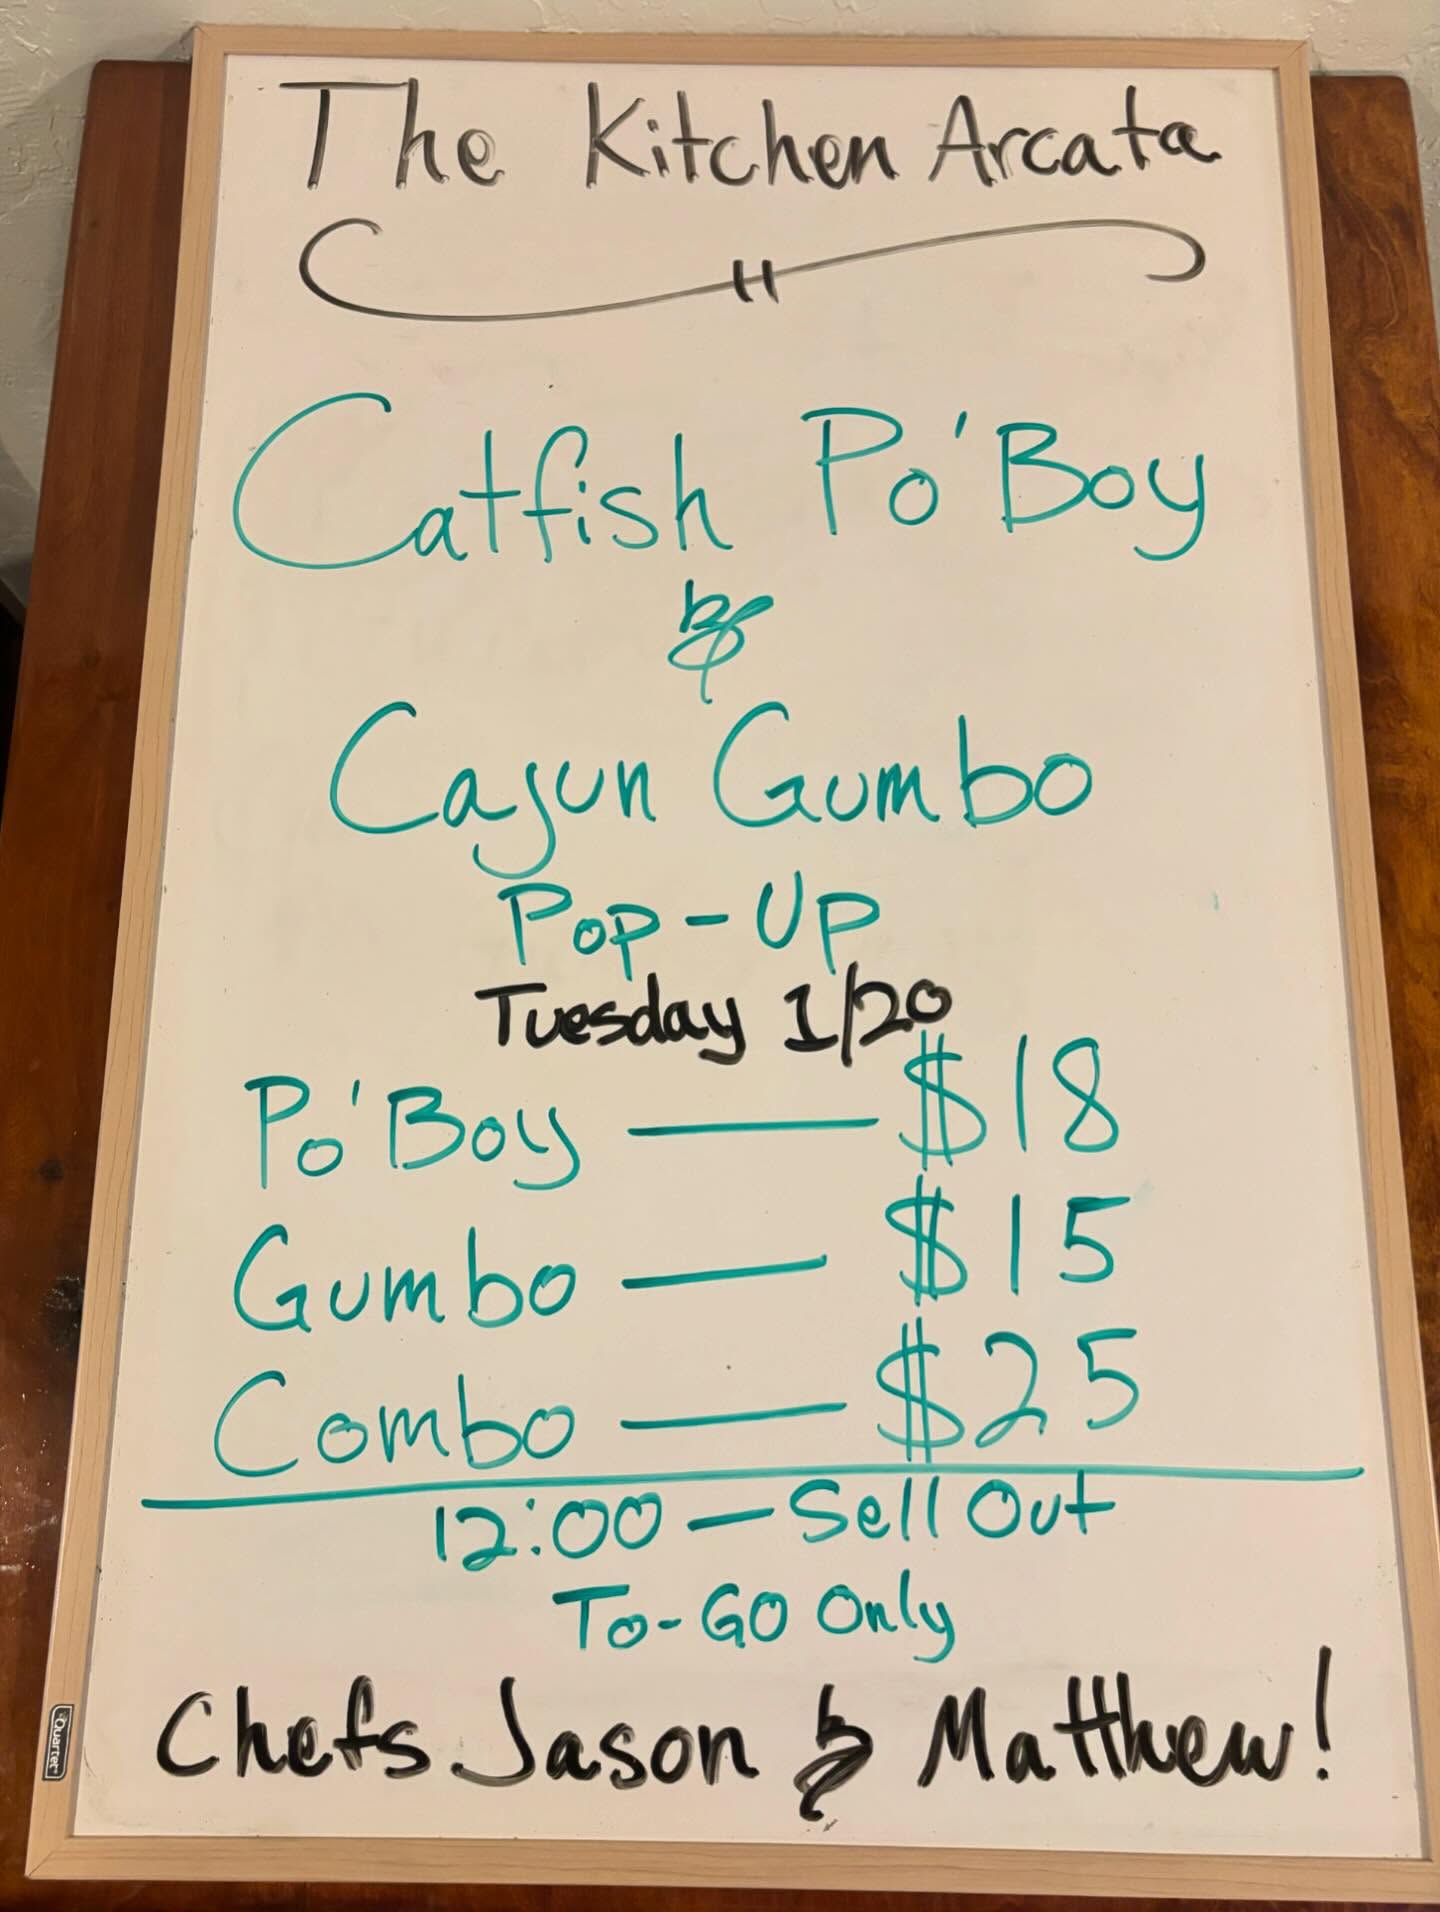 The Kitchen Arcata
Catfish Po'Boy
&
Cajun Gumbo
Pop-Up
Tuesday 1/20
Po'Boy — $18
Gumbo — $15
Combo — $25
12:00 — Sell Out
To-GO Only
Chefs Jason & Matthew!
Quartet